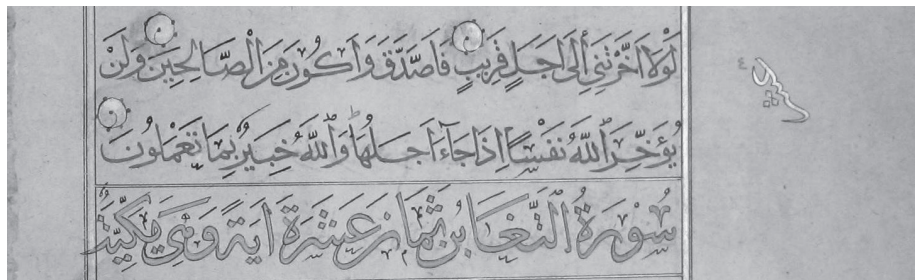 لَوْلَا أَخَّرْتَنِي إِلَى أَجَلٍ قَرِيبٍ فَأَصَّدَّقَ وَأَكُونَ مِنَ الصَّالِحِينَ وَلَنْ
يُؤَخِّرَ اللَّهُ نَفْسًا إِذَا جَاءَ أَجَلُهَا وَاللَّهُ خَبِيرٌ بِمَا تَعْمَلُونَ
سُورَةُ التَّغَابُنِ ثَمَانِ عَشْرَةَ آيَةً وَهِيَ مَكِّيَّةٌ